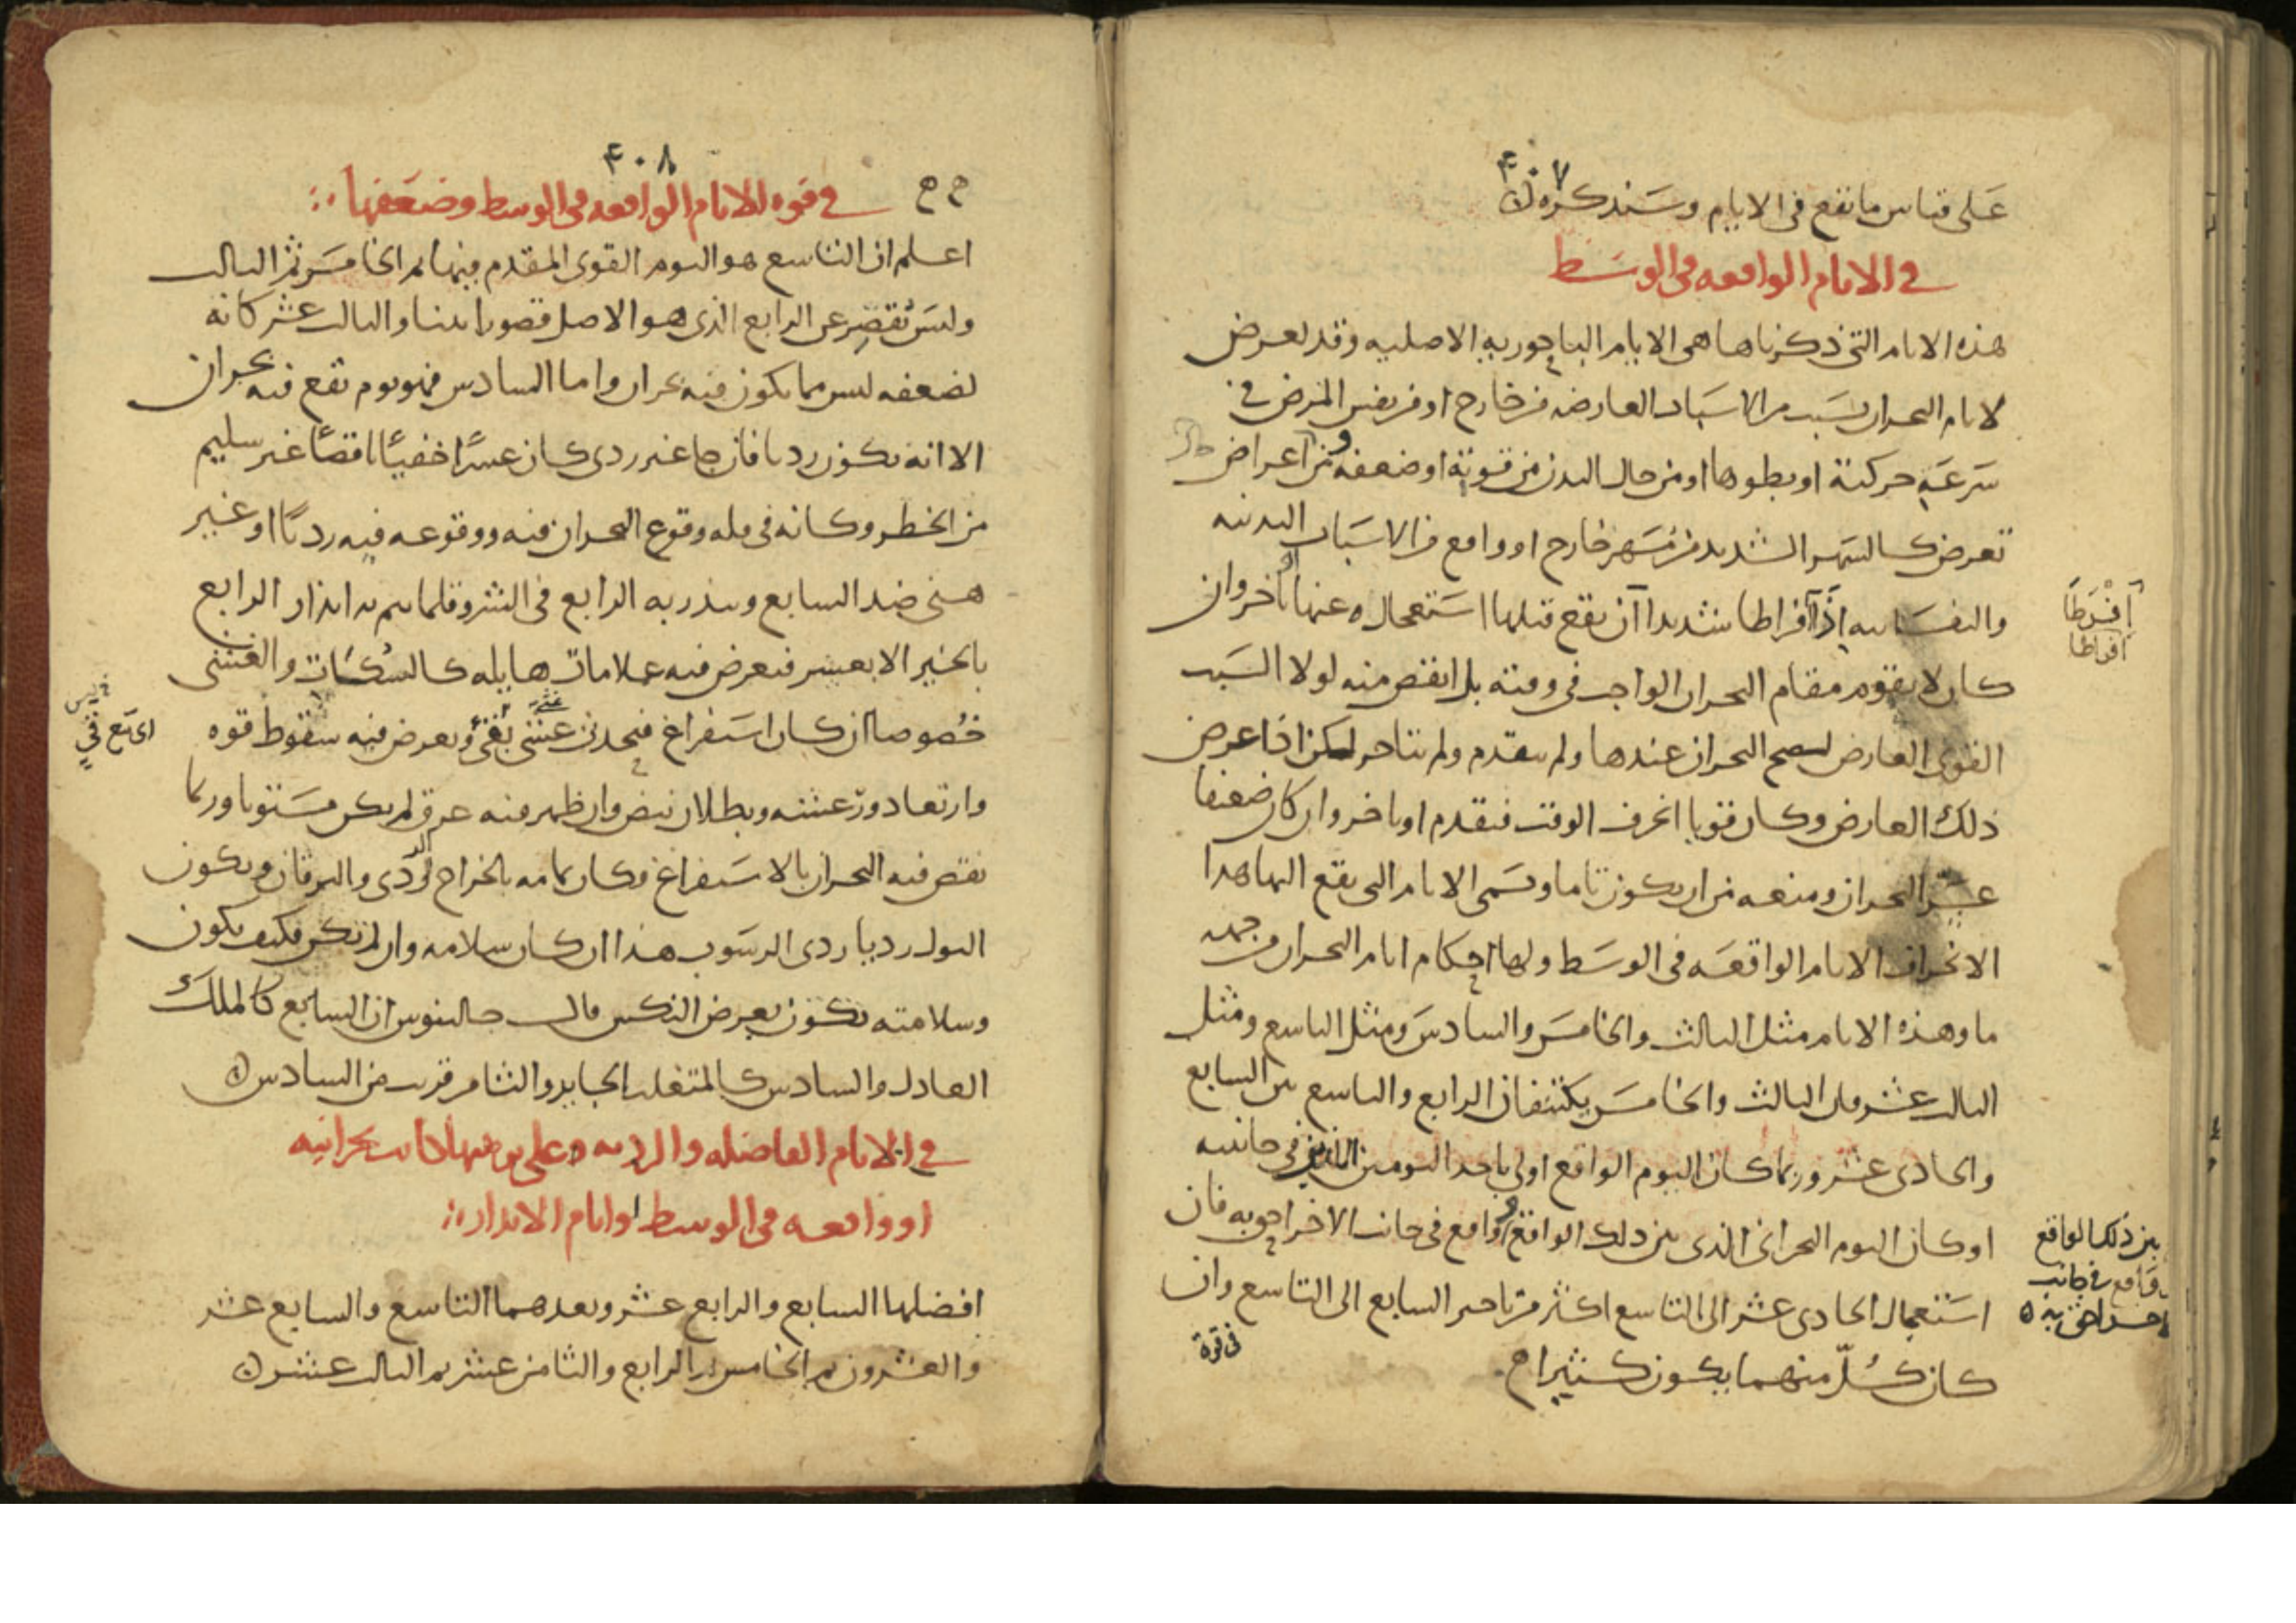 ٤٠٧
على قياس ما تقع في الايام وسنذكره
في الايام الواقعه في الوسط
هذه الايام التي ذكرناها هي الايام الباحوريه الاصليه وقد يعرض
لايام البحران بسبب من الاسباب العارضه من خارج او من نفس المرض في
سرعة حركته او بطوها او من حال البدن من قوته او ضعفه ومن اعراض
تعرض كالسهر الشديد من سهر خارج او واقع من الاسباب البدنيه
والنفسانيه اذا افراطا شديدا ان يقع قبلها استعجال او عنها تاخر وان
كان لا يقوم مقام البحران الواجب في وقته بل انقص منه لولا السبب
القوى العارض لصح البحران عندها ولم يتقدم ولم يتاخر لكن اذا عرض
ذلك العارض وكان قويا انحرف الوقت فتقدم او تاخر وان كان ضعيفا
عسر البحران ومنعه من ان يكون تاما وتسمى الايام التي يقع اليها هذا
الانحراف الايام الواقعه في الوسط ولها احكام ايام البحران من جهه
ما وهذه الايام مثل الثالث والخامس والسادس ومثل التاسع ومثل
الثالث عشر فان الثالث والخامس يكتنفان الرابع والتاسع بين السابع
والحادى عشر وربما كان اليوم الواقع اولى باحد اليومين اللذين في جانبيه
او كان اليوم البحراني الذي بين ذلك الواقع وواقع في جانب الاخر احق به فان
استعجال الحادى عشر الى التاسع اكثر من تاخير السابع الى التاسع وان
كان كلّ منهما يكون كثيرا
افرطا
افراطا
بين ذلك الواقع
وواقع في جانب
الاخر احق به
في قوة
٤٠٨
في قوه الايام الواقعه في الوسط وضعفها
اعلم ان التاسع هو اليوم القوى المقدم فيها ثم الخامس ثم الثالث
وليس يقصر عن الرابع الذي هو الاصل قصورا بينا والثالث عشر كانه
لضعفه ليس مما يكون فيه بحران واما السادس فهو يوم تقع فيه بحران
الا انه يكون رديا فان جا غير ردى كان عسرا خفيا ناقصا غير سليم
من الخطر وكانه في قله وقوع البحران فيه ووقوعه فيه رديا او غير
هنى ضد السابع وينذر به الرابع في الشر وقلما يتم به انذار الرابع
بالخير الا بعسر فيعرض فيه علامات هايله كالسكات والغشى
خصوصا ان كان استفراغ فيحدث غشى بقئ ويعرض فيه سقوط قوه
وارتعاد ورعشه وبطلان نبض وان ظهر فيه عرق لم يكن مستويا وربما
نقص فيه البحران بالاستفراغ فكان تمامه بالخراج الردى واليرقان ويكون
البول رديا ردى الرسوب هذا ان كان سلامه وان لم تكن فكيف يكون
وسلامته تكون بعرض النكس قال جالينوس ان السابع كالملك
العادل والسادس كالمتغلب الجابر والثامن قريب من السادس
في الايام الفاضله والرديه وعلى من فيها كانت بحرانيه
او واقعه في الوسط او ايام الانذار
افضلها السابع والرابع عشر وبعدهما التاسع والسابع عشر
والعشرون ثم الخامس ثم الرابع والثامن عشر ثم الثالث عشر